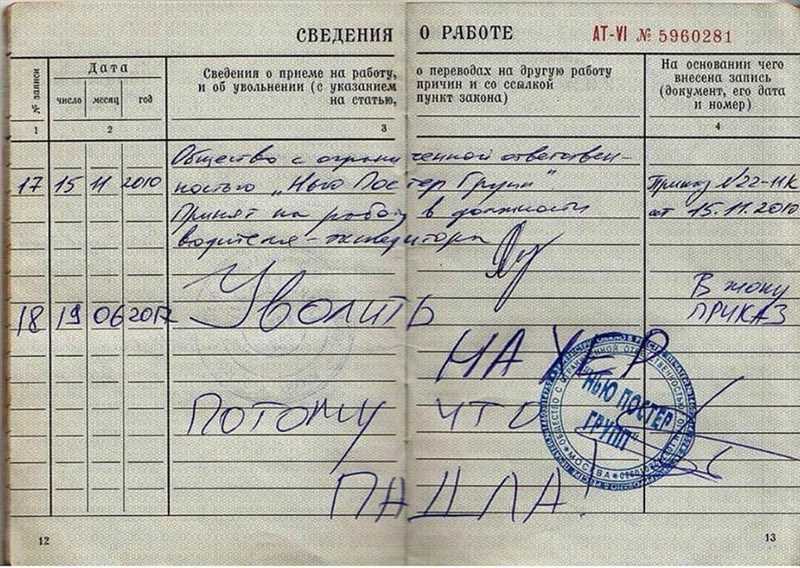 СВЕДЕНИЯ О РАБОТЕ АТ-VI № 5960281
№ записи
Дата
число месяц год
Сведения о приеме на работу, о переводах на другую работу
и об увольнении (с указанием причин и со ссылкой
на статью, пункт закона)
На основании чего
внесена запись
(документ, его дата
и номер)
1 2 3 4
Общество с ограниченной ответствен-
17 15 11 2010 ностью „Нью Постер Групп"
Приказ №22-НК
Принят на работу в должности
от 15.11.2010
водителя-экспедитора
18 19 06 2017 Уволить
В жопу
ПРИКАЗ
НАХЕР
ПОТОМУ ЧТО
ПАДЛА!
"НЬЮ ПОСТЕР
ГРУПП"
ОБЩЕСТВО С ОГРАНИЧЕННОЙ ОТВЕТСТВЕННОСТЬЮ
МОСКВА
12 13